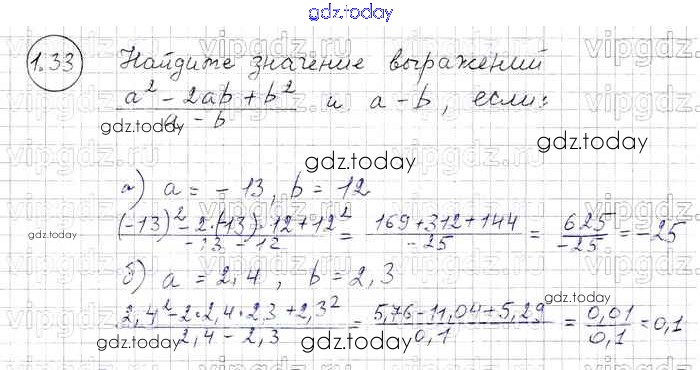 gdz.today
1.33 Найдите значение выражений
(a² - 2ab + b²)/(a - b) и a - b, если:
gdz.today
gdz.today
gdz.today
а) a = -13, b = 12
((-13)² - 2·(-13)·12 + 12²)/(-13 - 12) = (169 + 312 + 144)/(-25) = 625/(-25) = -25
gdz.today
gdz.today
б) a = 2,4, b = 2,3
(2,4² - 2·2,4·2,3 + 2,3²)/(2,4 - 2,3) = (5,76 - 11,04 + 5,29)/0,1 = 0,01/0,1 = 0,1
gdz.today
gdz.today